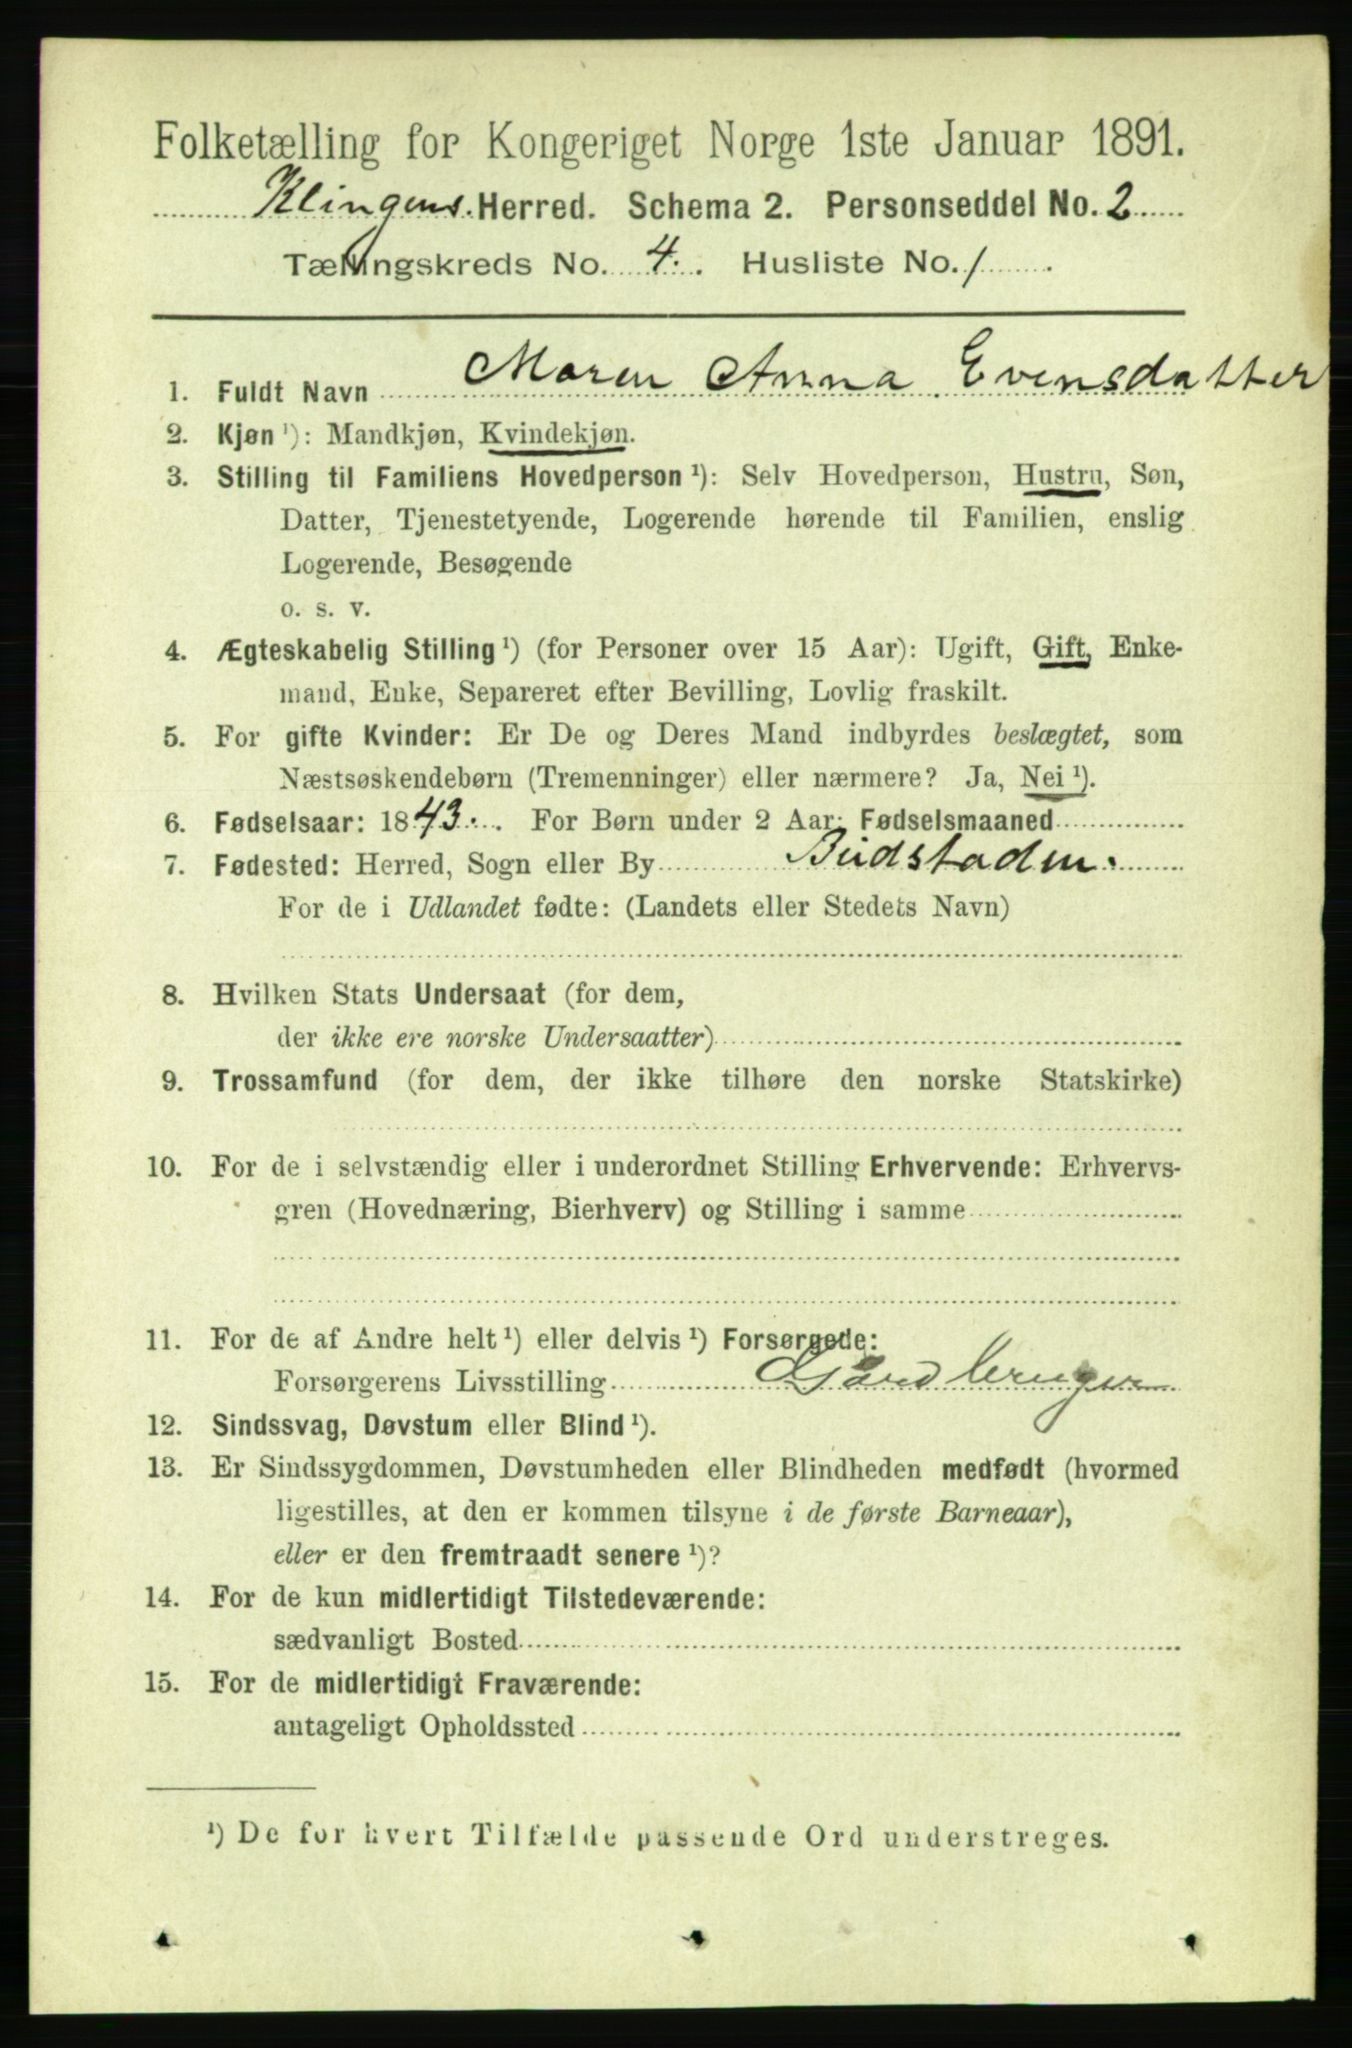 Folketælling for Kongeriget Norge 1ste Januar 1891.
Klingens Herred. Schema 2. Personseddel No. 2
Tællingskreds No. 4. Husliste No. 1
1. Fuldt Navn Maren Anna Evensdatter
2. Kjøn ¹): Mandkjøn, Kvindekjøn.
3. Stilling til Familiens Hovedperson ¹): Selv Hovedperson, Hustru, Søn,
Datter, Tjenestetyende, Logerende hørende til Familien, enslig
Logerende, Besøgende
o. s. v.
4. Ægteskabelig Stilling ¹) (for Personer over 15 Aar): Ugift, Gift, Enke-
mand, Enke, Separeret efter Bevilling, Lovlig fraskilt.
5. For gifte Kvinder: Er De og Deres Mand indbyrdes beslægtet, som
Næstsøskendebørn (Tremenninger) eller nærmere? Ja, Nei ¹).
6. Fødselsaar: 1843. For Børn under 2 Aar: Fødselsmaaned
7. Fødested: Herred, Sogn eller By Budstaden.
For de i Udlandet fødte: (Landets eller Stedets Navn)
8. Hvilken Stats Undersaat (for dem,
der ikke ere norske Undersaatter)
9. Trossamfund (for dem, der ikke tilhøre den norske Statskirke)
10. For de i selvstændig eller i underordnet Stilling Erhvervende: Erhvervs-
gren (Hovednæring, Bierhverv) og Stilling i samme
11. For de af Andre helt ¹) eller delvis ¹) Forsørgede:
Forsørgerens Livsstilling Gårdbruger
12. Sindssvag, Døvstum eller Blind ¹).
13. Er Sindssygdommen, Døvstumheden eller Blindheden medfødt (hvormed
ligestilles, at den er kommen tilsyne i de første Barneaar),
eller er den fremtraadt senere ¹)?
14. For de kun midlertidigt Tilstedeværende:
sædvanligt Bosted
15. For de midlertidigt Fraværende:
antageligt Opholdssted
¹) De for hvert Tilfælde passende Ord understreges.